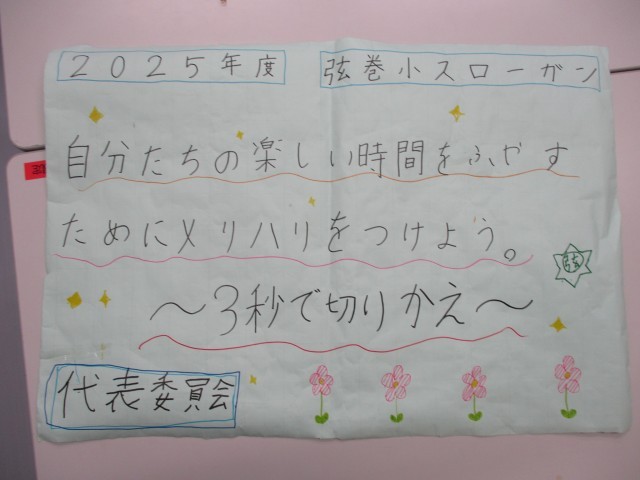 2025年度
弦巻小スローガン
自分たちの楽しい時間をふやす
ためにメリハリをつけよう。
弦
〜3秒で切りかえ〜
代表委員会